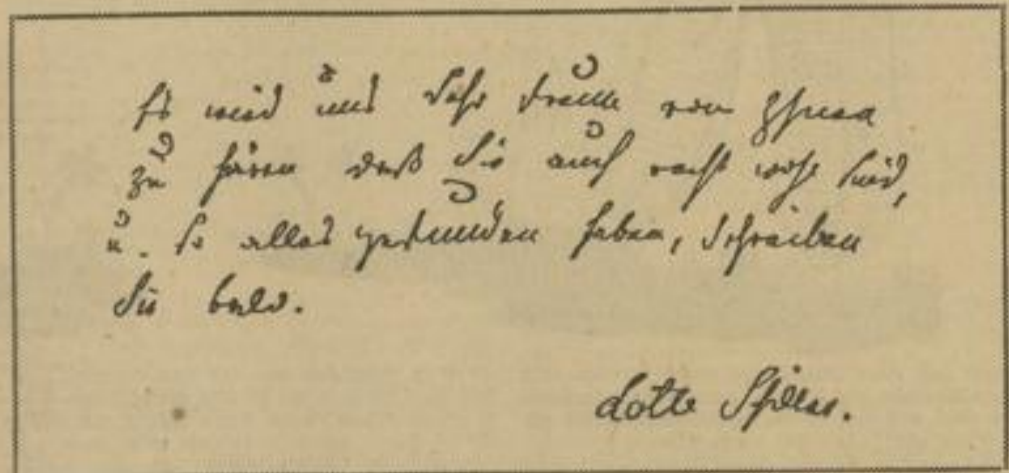 Es wird uns sehr freuen von Ihnen
zu hören daß Sie auch recht wohl sind,
u. so alles gefunden haben, schreiben
Sie bald.
Lotte